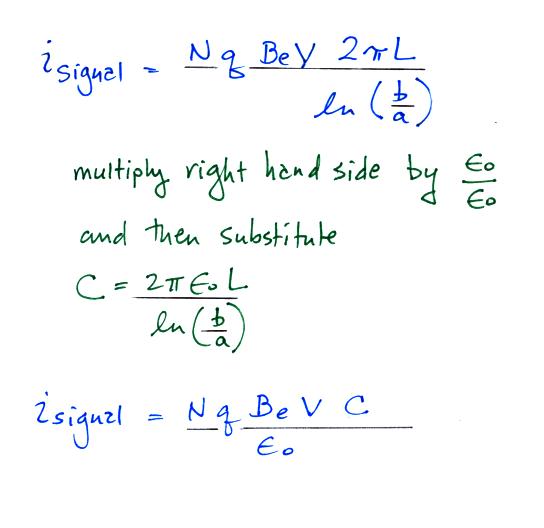 i signal = N q Be V 2πL / ln (b/a)
multiply right hand side by ϵo/ϵo
and then substitute
C = 2π ϵo L / ln (b/a)
i signal = N q Be V C / ϵo